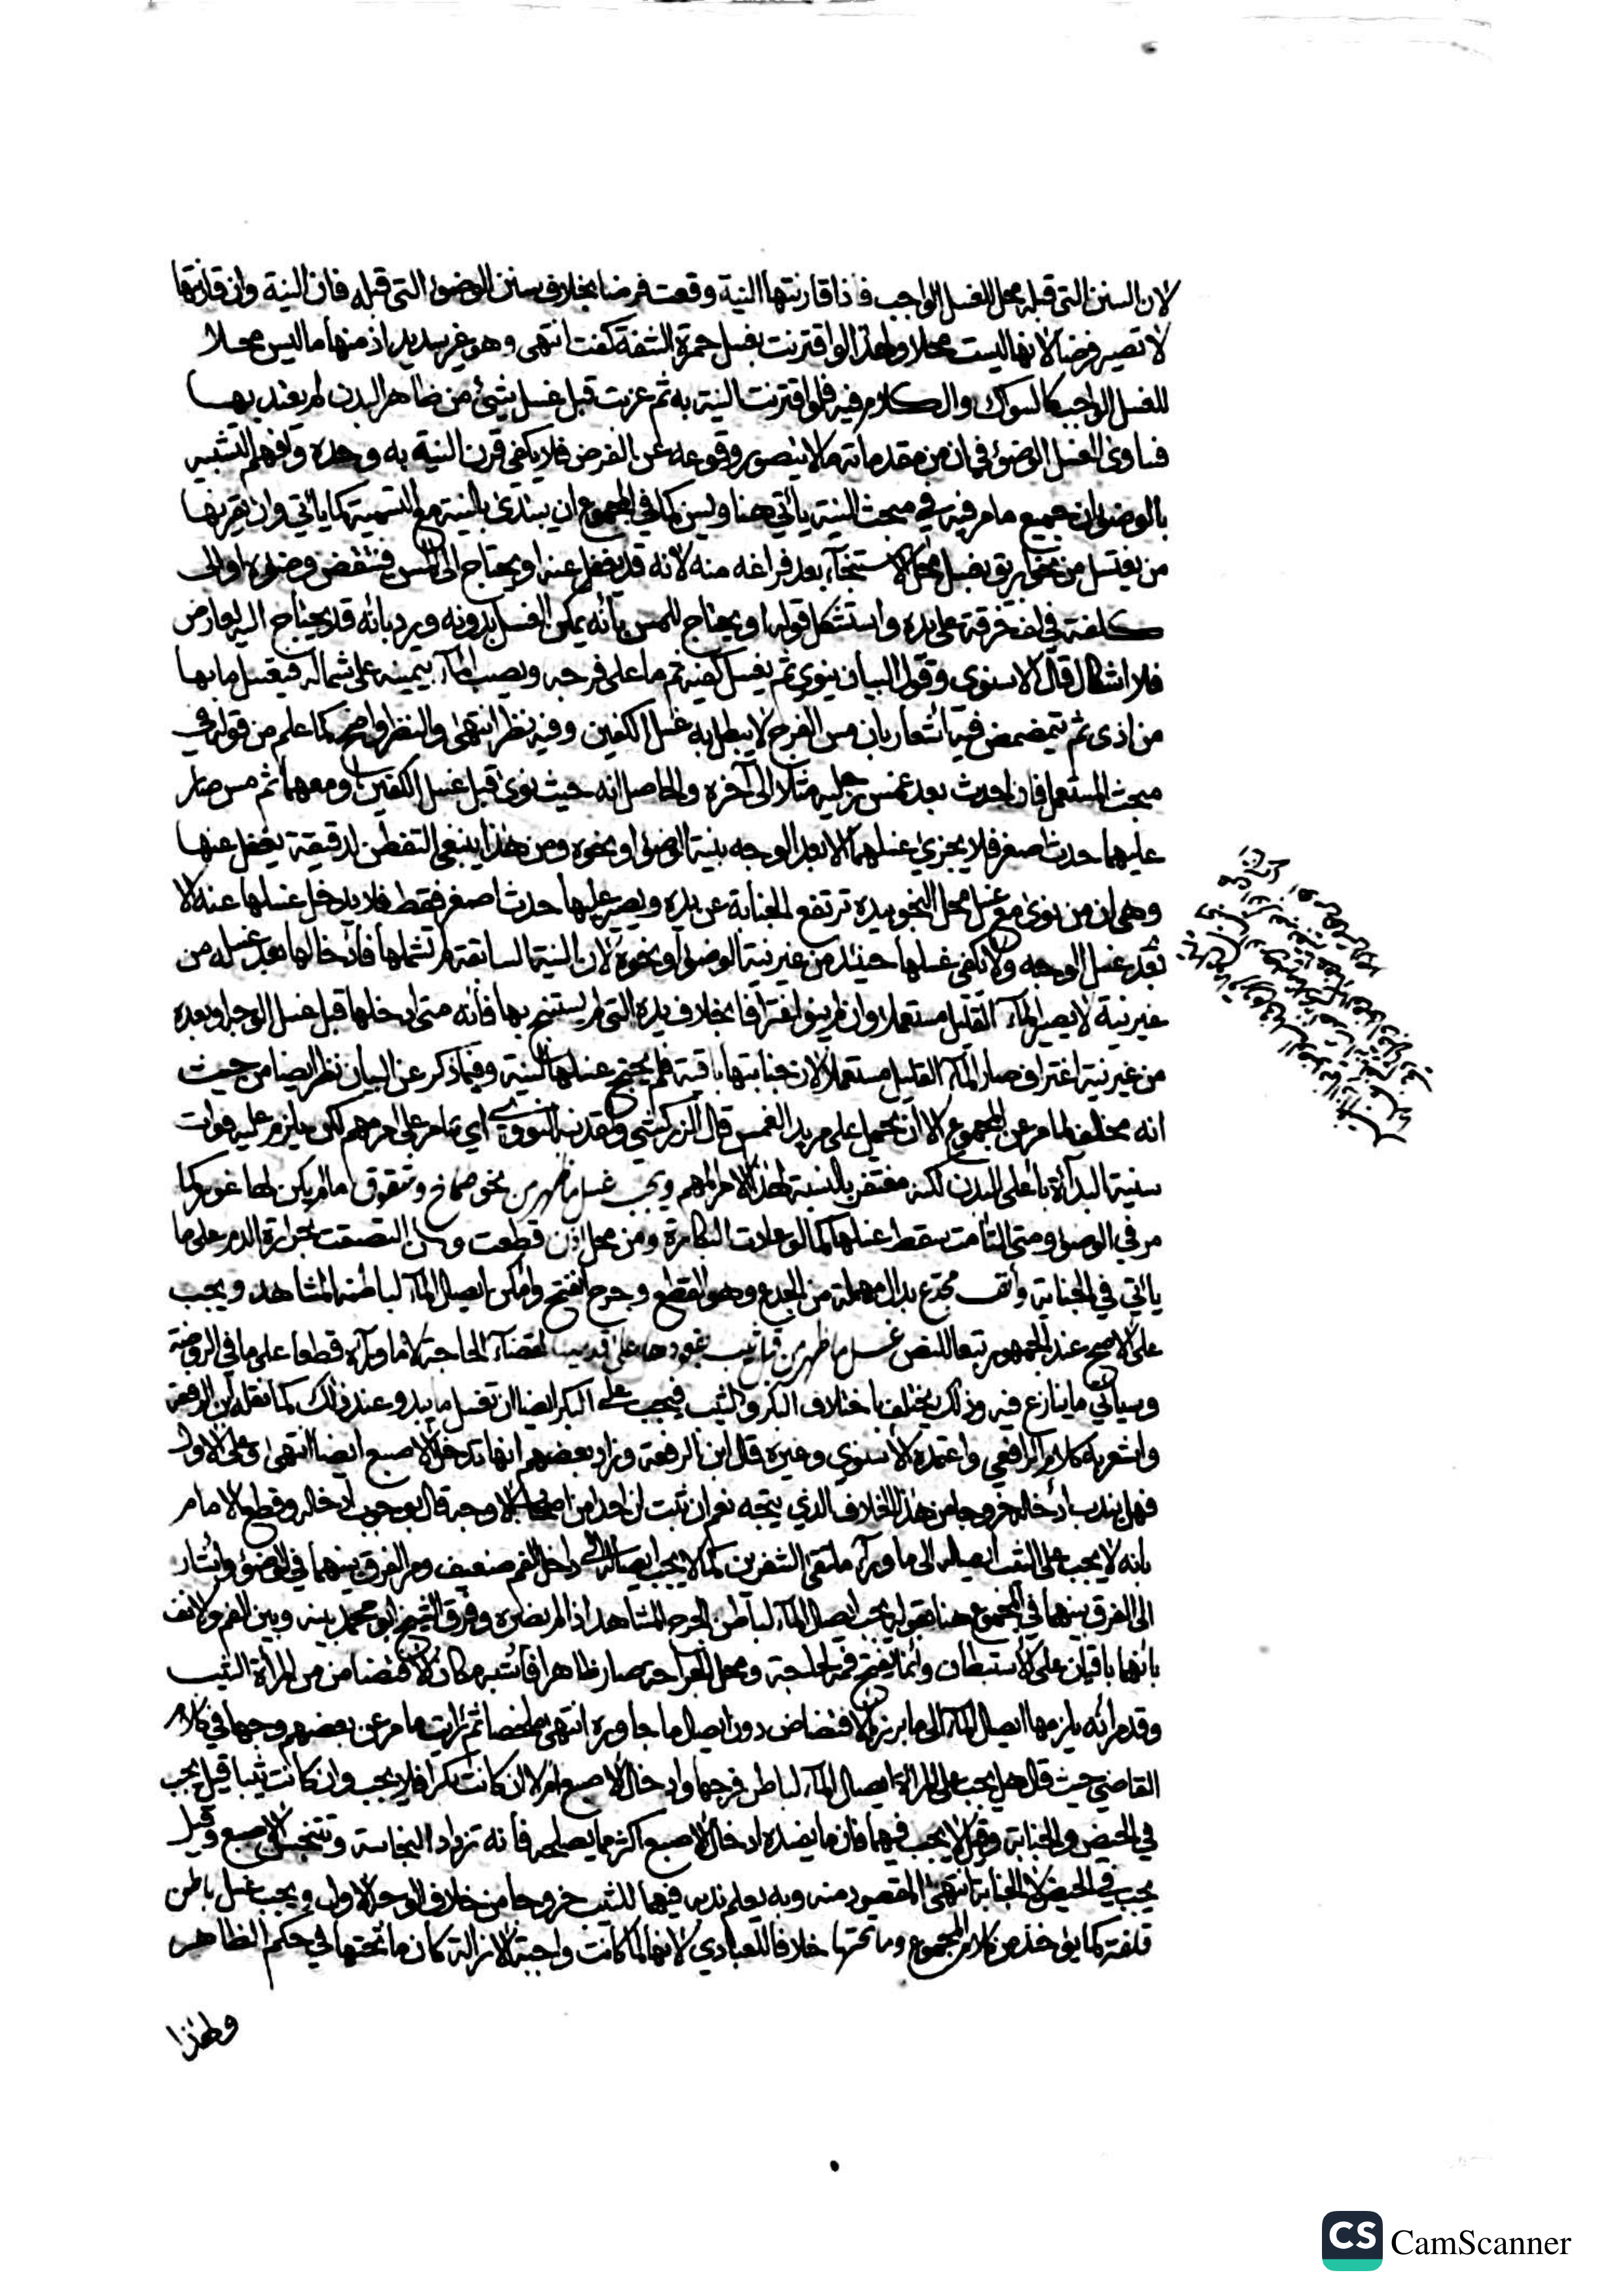 لان السنن التي قبله محل للغسل الواجب فاذا قارنتها النية وقعت فرضا بخلاف سنن الوضوء التي قبله فان النية وان قارنتها
لا تصير فرضا لانها ليست محلا ولهذا لو اقترنت بغسل حمرة الشفة كفت انتهى وهو غير سديد اذ منها ما ليس محلا
للغسل الواجب كالسواك والكلام فيه فلو اقترنت النية به ثم عزبت قبل غسل شيء من ظاهر البدن لم يعتد بها
فساوى الغسل الوضوء في ان من مقدماته ما لا يتصور وقوعه عن الفرض فلا يكفي قرن النية به وحده وافهم التشبيه
بالوضوء ان جميع ما مر فيه في مبحث النية يأتي هنا ويسن كما في المجموع ان يبتدئ بالنية مع التسمية كما يأتي وان يقرنها
من يغتسل من نحو ابريق بغسل محل الاستنجاء بعد فراغه منه لانه قد يغفل عنه او يحتاج الى المس فينتقض وضوءه او الى
كلفة في لف خرقة على يده واستشكل قوله او يحتاج للمس بانه يمكن الغسل بدونه ويرد بانه قد يحتاج اليه لعارض
فلا اشكال قال الاسنوي وقول البيان ينوي ثم يغسل كفيه ثم ما على فرجه ويصب الماء بيمينه على شماله فيغسل ما بها
من اذى ثم يتمضمض فيه اشعار بان مس الفرج لا يبطل به غسل الكفين وفيه نظر انتهى والنظر واضح كما علم من قوله في
مبحث المستعمل فان احدث بعد غمس رجليه مثلا الى آخره والحاصل انه حيث نوى قبل غسل الكفين او معهما ثم مس صار
عليهما حدث اصغر فلا يجزئ غسلهما الا بعد الوجه بنية الوضوء او نحوه ومن هذا ينبغي التفطن لدقيقة يغفل عنها
وهي ان من نوى مع غسل محل النجو بيده ترتفع الجنابة عن يده ويصير عليها حدث اصغر فقط فلا يدخل غسلها عنه الا
بعد غسل الوجه ولا يكفي غسلها حينئذ من غير نية الوضوء او نحوه لان النية السابقة لم تشملها فادخالها بعد غسله من
غير نية لا يصير الماء القليل مستعملا وان لم ينو اغترافا بخلاف يده التي لم يستنج بها فانه متى ادخلها قبل غسل الوجه او بعده
من غير نية اغتراف صار الماء القليل مستعملا لان جنابتها باقية فلم يحتج غسلها لنية وفيما ذكر عن البيان نظر ايضا من حيث
انه مخالف لما مر عن المجموع الا ان يحمل على مريد الغمس قال الزركشي وتقدمه النووي اي تمامر على امر مهم لكن يلزم عليه فوات
سنية البداءة باعلى البدن لكنه مغتفر بالنسبة لهذا الامر المهم ويجب غسل ما ظهر من نحو صماخ وشقوق ما لم يكن لها غور كما
مر في الوضوء ومتى التأمت سقط غسلها كما لو عادت البكارة ومن محل اذن قطعت وان التصقت بحرارة الدم على ما
يأتي في الجناية وانف مجدع بدال مهملة من الجدع وهو القطع وجرح انفتح وامكن ايصال الماء لباطنه المشاهد ويجب
على الاصح عند الجمهور تبعا للنص غسل ما ظهر من فرج ثيب بقعودها على قدميها لقضاء الحاجة لا ما وراءه قطعا على ما في الروضة
وسيأتي ما ينازع فيه وذلك يختلف باختلاف البكر والثيب فيجب على البكر ايضا ان تغسل ما يبدو عند ذلك كما نقله ابن الرفعة
واشعر به كلام الرافعي واعتمده الاسنوي وغيره قال ابن الرفعة وزاد بعضهم انها تدخل الاصبع ايضا انتهى وعلى الاول
فهل يندب ادخاله خروجا من هذا الخلاف الذي يتجه نعم ان ثبت ان احدا من اصحاب الاوجه قال بوجوب ادخاله وقطع الامام
بانه لا يجب على الثيب ايصاله الى ما وراء ملتقى الشفرين كما لا يجب ايصاله الى داخل الفم ضعيف ومر الفرق بينهما في الوضوء واشار
الى الفرق بينهما في المجموع هنا بقوله يجب ايصال الماء لباطن الجرح المشاهد اذا لم يضره وفرق الشيخ ابو محمد بينه وبين الفم والانف
بانهما باقيان على الاستبطان وانما يفتح فمه لحاجة ومحل الجراحة صار ظاهرا فاشبه مكان الافتضاض من المرأة الثيب
وقد مر انه يلزمها ايصال الماء الى ما برز بالافتضاض دون ايصال ما جاوره انتهى ملخصا ثم رأيت ما مر عن بعضهم وجها في كلام
القاضي حيث قال هل يجب على المرأة ايصال الماء لباطن فرجها وادخال الاصبع ام لا ان كانت بكرا فلا يجب وان كانت ثيبا قيل يجب
في الحيض والجنابة وقيل لا يجب فيهما فان ما يفسده ادخال الاصبع اكثر مما يصلحه فانه تزداد النجاسة وتتنجس الاصبع وقيل
يجب في الحيض لا الجنابة انتهى المقصود منه وبه يعلم ندبه فيهما للثيب خروجا من خلاف الوجه الاول ويجب غسل باطن
قلفة كما يؤخذ من كلام المجموع وما تحتها خلافا للعبادي لانها لما كانت واجبة الازالة كان ما تحتها في حكم الظاهر
ولهذا
CS CamScanner